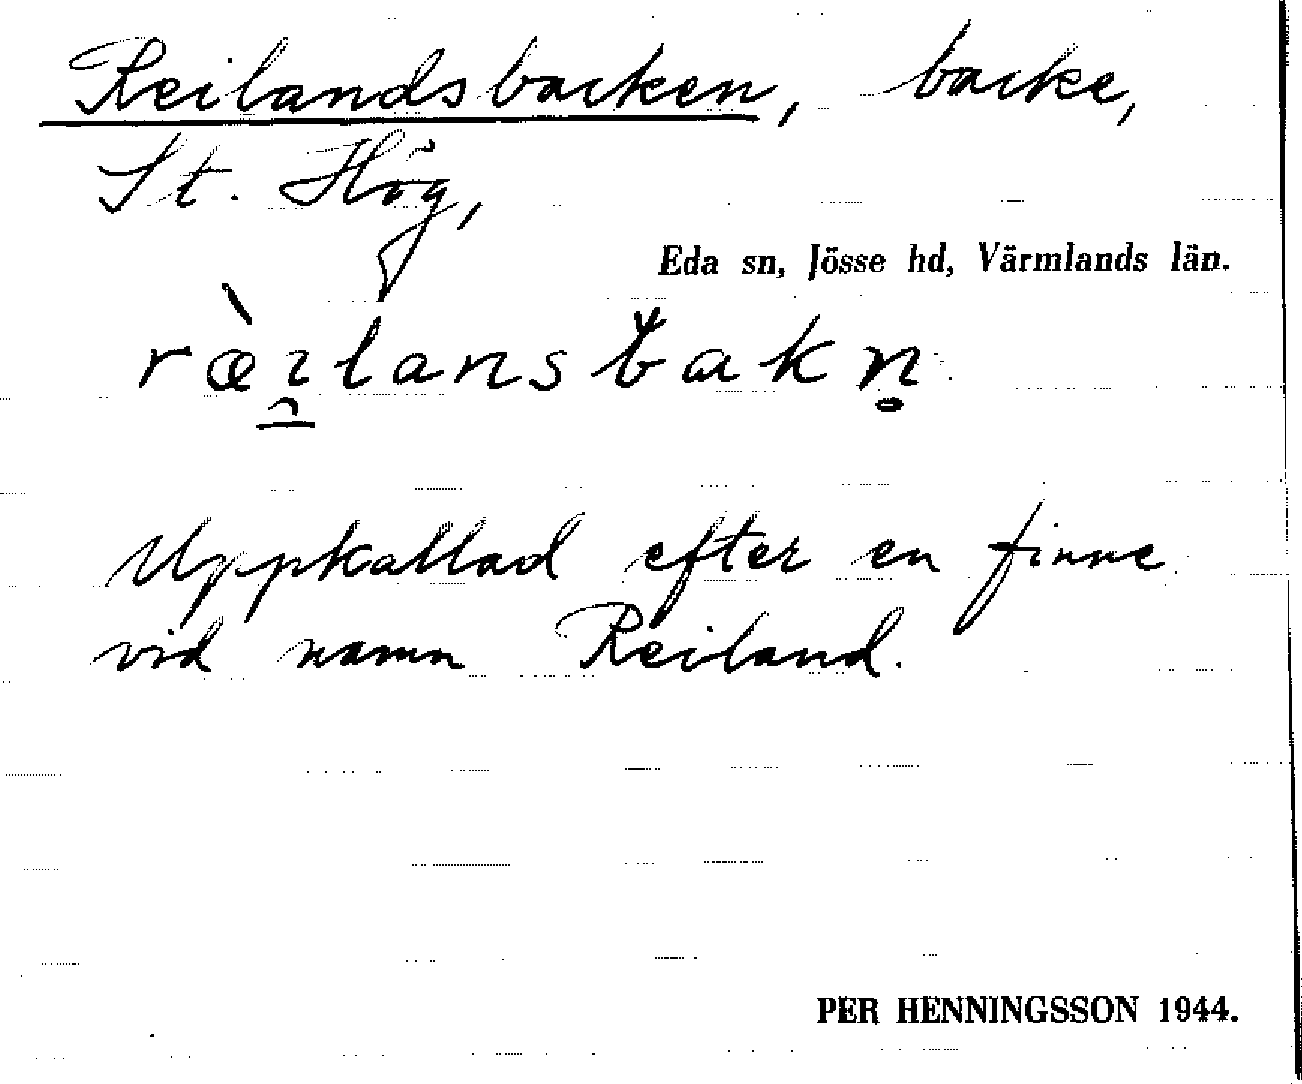 Reilandsbacken, backe,
St. Hög,
Eda sn, Jösse hd, Värmlands län.
ræ̀ı̯lansbakn̥
Uppkallad efter en finne
vid namn Reiland.
PER HENNINGSSON 1944.